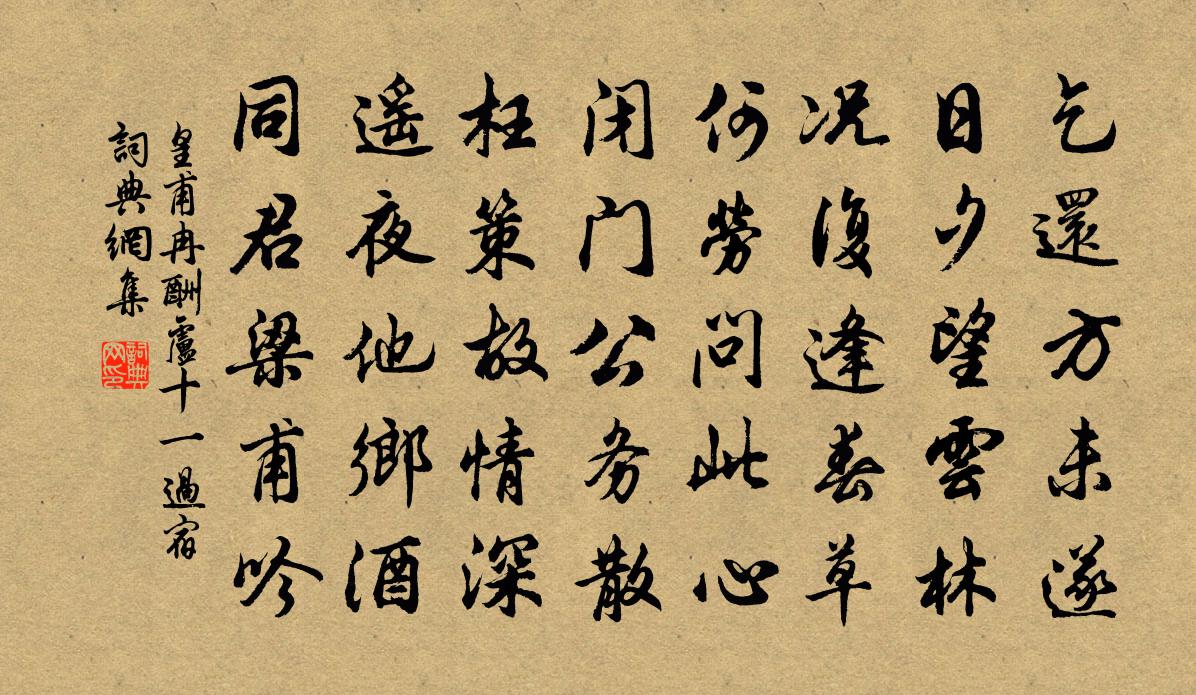 乞還方未遂
日夕望雲林
况復逢春草
何勞問此心
闭门公务散
枉策故情深
遥夜他鄉酒
同君梁甫吟
皇甫冉酬盧十一過宿
詞典網集
詞典
网印